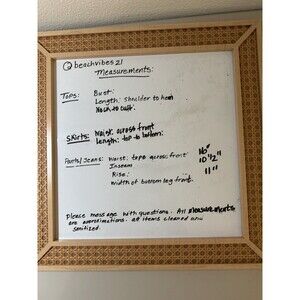 @beachvibes21
Measurements:
Tops: Bust:
Length: shoulder to hem
Neck to cuff:
Skirts: Waist, across front
Length: top to bottom:
Pants/Jeans: Waist: top across front 16"
Inseam 10 1/2"
Rise: 11"
Width of bottom leg front.
Please message with questions. All measurements
are approximations. All items cleaned and
sanitized.